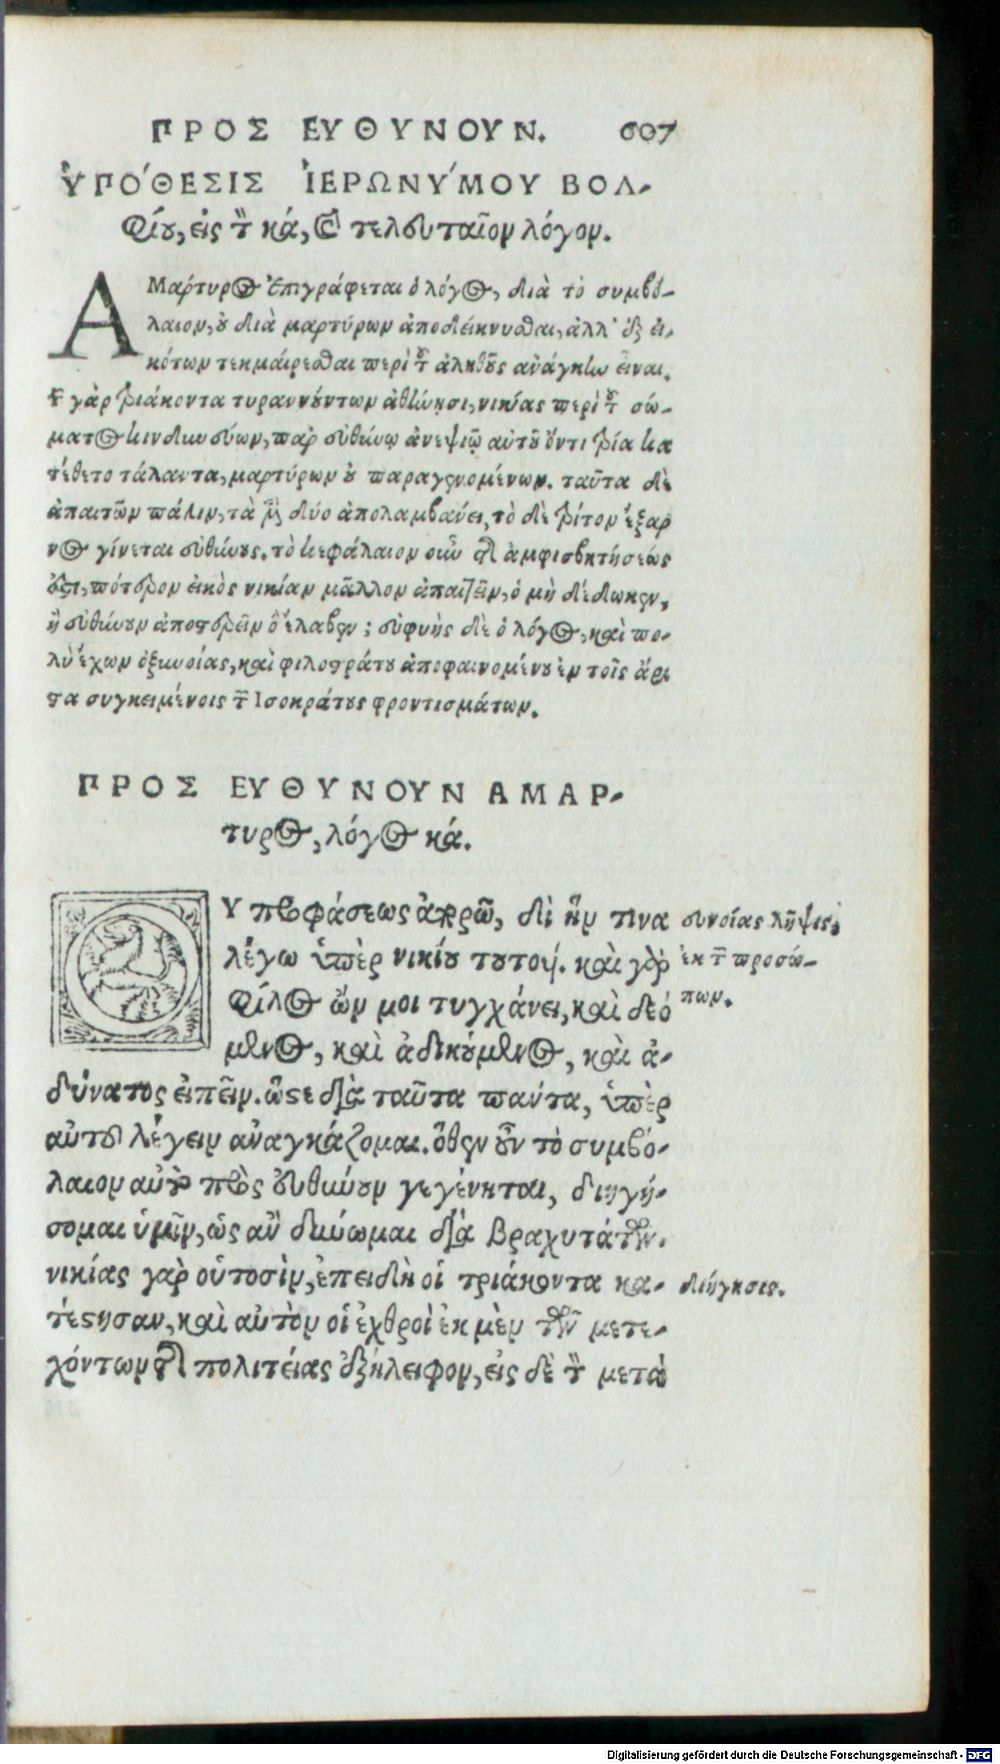 ΠΡΟΣ ΕΥΘΥΝΟΥΝ. 607
ὙΠΟ´ΘΕΣΙΣ ἹΕΡΩΝΥ´ΜΟΥ ΒΟΛ-
φίου, εἰς τὸν κά, καὶ τελευταῖον λόγον.
ΑΜάρτυρος ἐπιγράφεται ὁ λόγος, διὰ τὸ συμβό-
λαιον, οὐ διὰ μαρτύρων ἀποδείκνυσθαι, ἀλλ' ἐξ εἰ-
κότων τεκμαίρεσθαι περὶ τοῦ ἀληθοῦς ἀνάγκην εἶναι.
τῶν γὰρ τριάκοντα τυραννούντων ἀθήνησι, νικίας περὶ τοῦ σώ-
ματος κινδυνεύων, παρ' εὐθύνῳ ἀνεψιῷ αὐτοῦ ὄντι τρία κα
τέθετο τάλαντα, μαρτύρων οὐ παραγενομένων. ταῦτα δὲ
ἀπαιτῶν πάλιν, τὰ μὲν δύο ἀπολαμβάνει, τὸ δὲ τρίτον ἔξαρ
νος γίνεται εὐθύνους. τὸ κεφάλαιον οὖν τῆς ἀμφισβητήσεώς
ἐστι, πότερον εἰκὸς νικίαν μᾶλλον ἀπαιτεῖν, ὃ μὴ δέδωκεν,
ἢ εὐθύνουν ἀποστερεῖν ὃ ἔλαβεν; εὐφυὴς δὲ ὁ λόγος, καὶ πο-
λὺ ἔχων ὀξυνοίας, καὶ φιλοστράτου ἀποφαινομένου ἐν τοῖς ἄρι
στα συγκειμένοις τῶν Ισοκράτους φροντισμάτων.
ΠΡΟΣ ΕΥΘΥΝΟΥΝ ΑΜΑΡ-
τυρος, λόγος κά.
ΟΥ προφάσεως ἀπορῶ, δι' ἥν τινα
λέγω ὑπὲρ νικίου τουτουί. καὶ γὰρ
φίλος ὤν μοι τυγχάνει, καὶ δεό
μενος, καὶ ἀδικούμενος, καὶ ἀ-
δύνατος εἰπεῖν. ὥστε διὰ ταῦτα πάντα, ὑπὲρ
αὐτοῦ λέγειν ἀναγκάζομαι. ὅθεν οὖν τὸ συμβό-
λαιον αὐτῷ πρὸς εὐθύνουν γεγένηται, διηγή-
σομαι ὑμῖν, ὡς ἂν δύνωμαι διὰ βραχυτάτων.
νικίας γὰρ οὑτοσὶν, ἐπειδὴ οἱ τριάκοντα κα-
τέστησαν, καὶ αὐτὸν οἱ ἐχθροὶ ἐκ μὲν τῶν μετε-
χόντων τῆς πολιτείας ἐξήλειφον, εἰς δὲ τὸν μετὰ
συνοίας λῆψις,
ἐκ τῶν προσώ-
πων.
διήγησις.
Digitalisierung gefördert durch die Deutsche Forschungsgemeinschaft - DFG